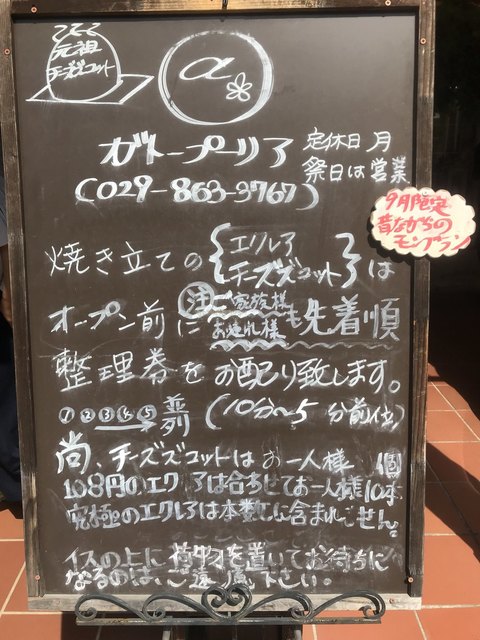 元祖
チーズズコット
α
ガトープーリア
定休日 月
祭日は営業
(029-863-3767)
9月限定
昔ながらの
モンブラン
焼き立ての{エクレア
チーズズコット}は
オープン前に 注 ご家族様
お連れ様 も先着順
整理券をお配り致します。
①②③④⑤ 並列 (10分〜5分前位)
尚、チーズズコットはお一人様 個
108円のエクレアは合わせてお一人様10本
究極のエクレアは本数に含まれません。
イスの上に荷物を置いてお待ちに
なるのは、ご遠慮下さい。